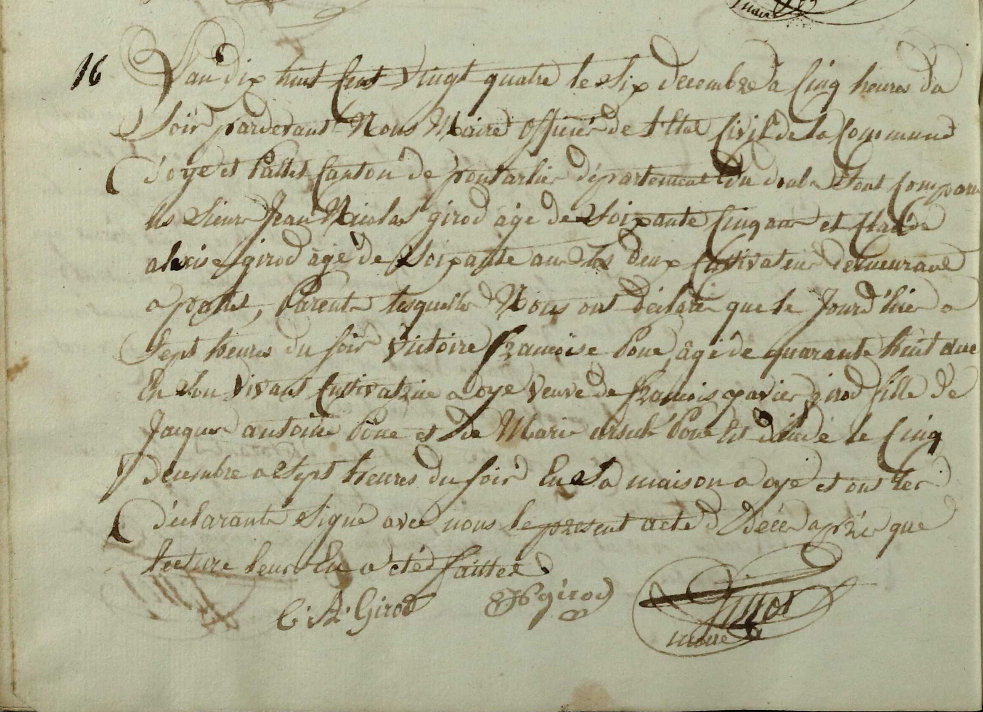 maire
16
L'an dix huit Cent vingt quatre le Six decembre a Cinq heures du
Soir pardevant Nous Maire officier de l'Etat Civil de la Commune
d'oye et Pallet Canton de pontarlier département du doubs Sont Comparu
les Sieur Jean Nicolas girod âgé de Soixante Cinq ans et Claude
alexise girod âgé de Soixante ans Les deux Cultivateur demeurant
a pallet, Parents lesquelle Nous ont déclaré que le Jourd'hier a
Sept heures du soir Victoire françoise Pone âgé de quarante huit ans
En Son vivant Cultivatrice a oye veuve de françois xavier girod fille de
Jacques antoine Pône et de Marie ursule Pone Est décédé le Cinq
decembre a Sept heures du soir En Sa maison a oye et ont les
déclarants Signé avec nous le present acte de décès après que
lecture leur En a été faittes
C A Girod JN girod
maire